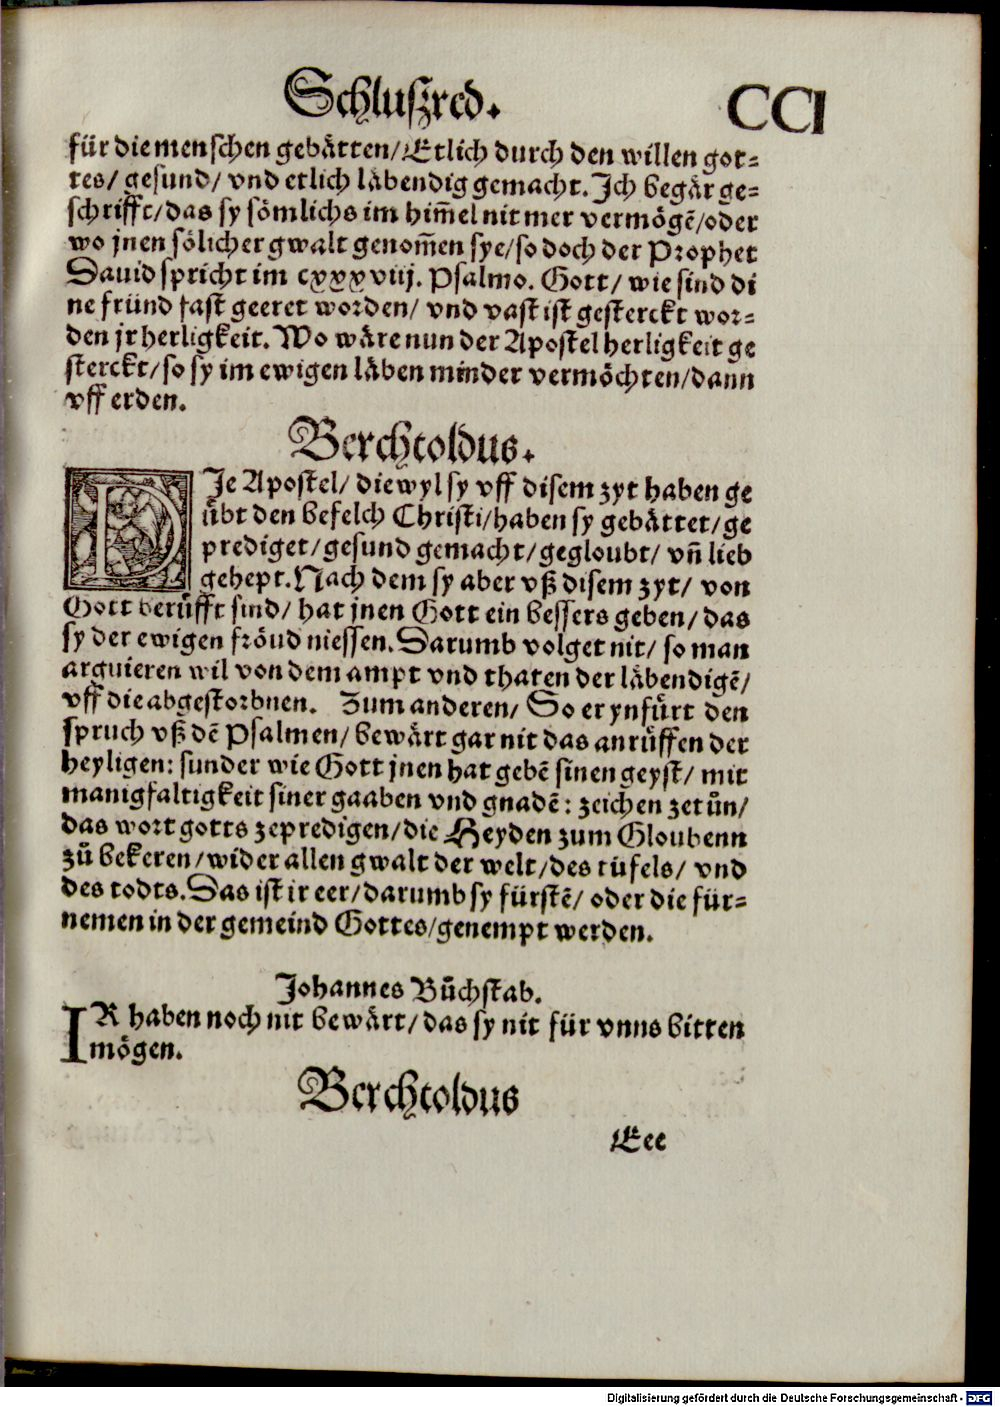 Schluszred. CCI
für die menschen gebätten/Etlich durch den willen got-
tes/ gesund/ vnd etlich läbendig gemacht. Ich begär ge-
schrifft/das sy sömlichs im him̄el nit mer vermögē/oder
wo jnen sölicher gwalt genom̄en sye/so doch der Prophet
Dauid spricht im cxxxviij. Psalmo. Gott/ wie sind di
ne fründ fast geeret worden/ vnd vast ist gesterckt wor-
den jr herligkeit. Wo wäre nun der Apostel herligkeit ge
sterckt/so sy im ewigen läben minder vermöchten/dann
vff erden.
Berchtoldus.
DIe Apostel/ diewyl sy vff disem zyt haben ge
übt den befelch Christi/haben sy gebättet/ge
prediget/gesund gemacht/gegloubt/ vn̄ lieb
gehept. Nach dem sy aber vß disem zyt/ von
Gott berüfft sind/ hat jnen Gott ein bessers geben/ das
sy der ewigen fröud niessen. Darumb volget nit/ so man
arguieren wil von dem ampt vnd thaten der läbendigē/
vff die abgestorbnen. Zum anderen/ So er ynfürt den
spruch vß dē Psalmen/ bewärt gar nit das anrüffen der
heyligen: sunder wie Gott jnen hat gebē sinen geyst/ mit
manigfaltigkeit siner gaaben vnd gnadē: zeichen zetůn/
das wort gotts zepredigen/die Heyden zum Gloubenn
zů bekeren/wider allen gwalt der welt/des tüfels/ vnd
des todts. Das ist ir eer/darumb sy fürstē/ oder die für-
nemen in der gemeind Gottes/genempt werden.
Johannes Bůchstab.
IR haben noch nit bewärt/das sy nit für vnns bitten
mögen.
Berchtoldus
Eee
Digitalisierung gefördert durch die Deutsche Forschungsgemeinschaft - DFG